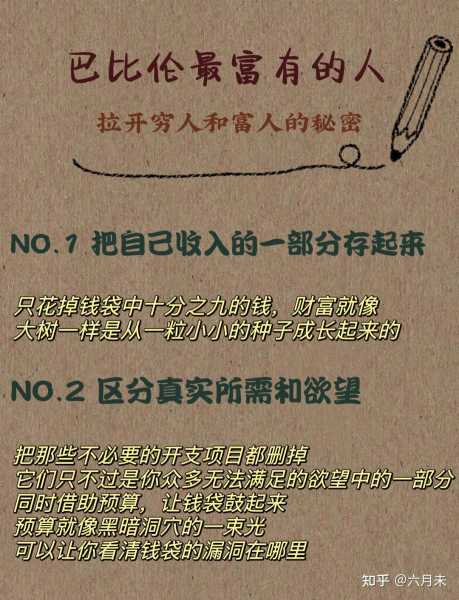 巴比伦最富有的人
拉开穷人和富人的秘密
NO.1 把自己收入的一部分存起来
只花掉钱袋中十分之九的钱，财富就像
大树一样是从一粒小小的种子成长起来的
NO.2 区分真实所需和欲望
把那些不必要的开支项目都删掉
它们只不过是你众多无法满足的欲望中的一部分
同时借助预算，让钱袋鼓起来
预算就像黑暗洞穴的一束光
可以让你看清钱袋的漏洞在哪里
知乎 @六月未